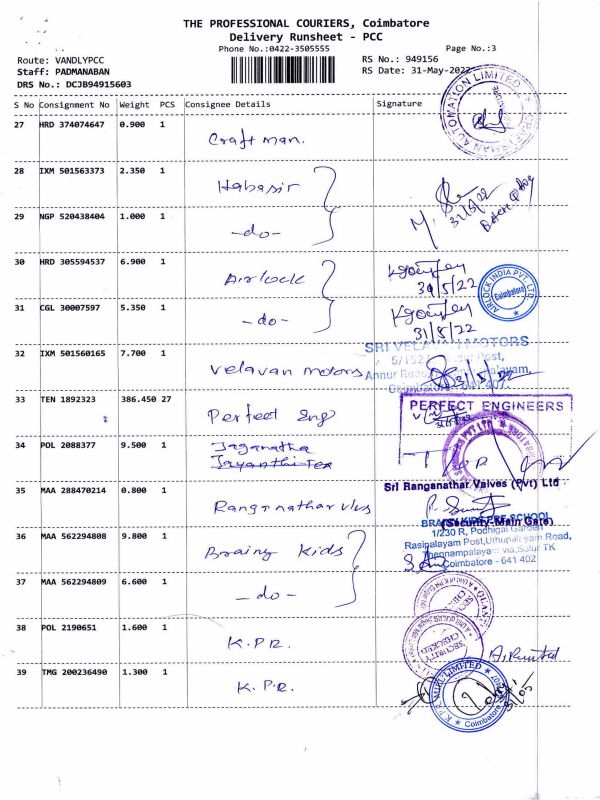 THE PROFESSIONAL COURIERS, Coimbatore
Delivery Runsheet - PCC
Phone No.:0422-3505555
Page No.:3
Route: VANDLYPCC
RS No.: 949156
Staff: PADMANABAN
RS Date: 31-May-2022
DRS No.: DCJB94915603
S No Consignment No Weight PCS Consignee Details Signature
27 HRD 374074647 0.900 1 Craft man.
AUTOMATION LIMITED
28 IXM 501563373 2.350 1 Habasir
31/5/22
29 NGP 520438404 1.000 1 -do-
30 HRD 305594537 6.900 1 Airlock
31/5/22
AIRLOCK INDIA PVT. LTD
Coimbatore
31 CGL 30007597 5.350 1 -do-
31/5/22
SRI VELAVAN MOTORS
32 IXM 501560165 7.700 1 Velavan motors
Coimbatore - 641 407
31/5/22
33 TEN 1892323 386.450 27 Perfect Eng
PERFECT ENGINEERS
34 POL 2088377 9.500 1 Jaganatha
Jayanthi Tex
35 MAA 288470214 0.800 1 Ranganathar vlvs
Sri Ranganathar Valves (Pvt) Ltd
(Security-Main Gate)
36 MAA 562294808 9.800 1 Brainy Kids
BRAINY KIDS PRE SCHOOL
1/230 R, Podhigai Garden
Rasipalayam Post, Uthupalayam Road,
Thennampalayam via, Sulur TK
Coimbatore - 641 402
37 MAA 562294809 6.600 1 -do-
SECURITY
CHECKED
38 POL 2190651 1.600 1 K.P.R.
SECURITY
CHECKED
39 TMG 200236490 1.300 1 K.P.R.
K.P.R. MILL LIMITED
Coimbatore
31/05